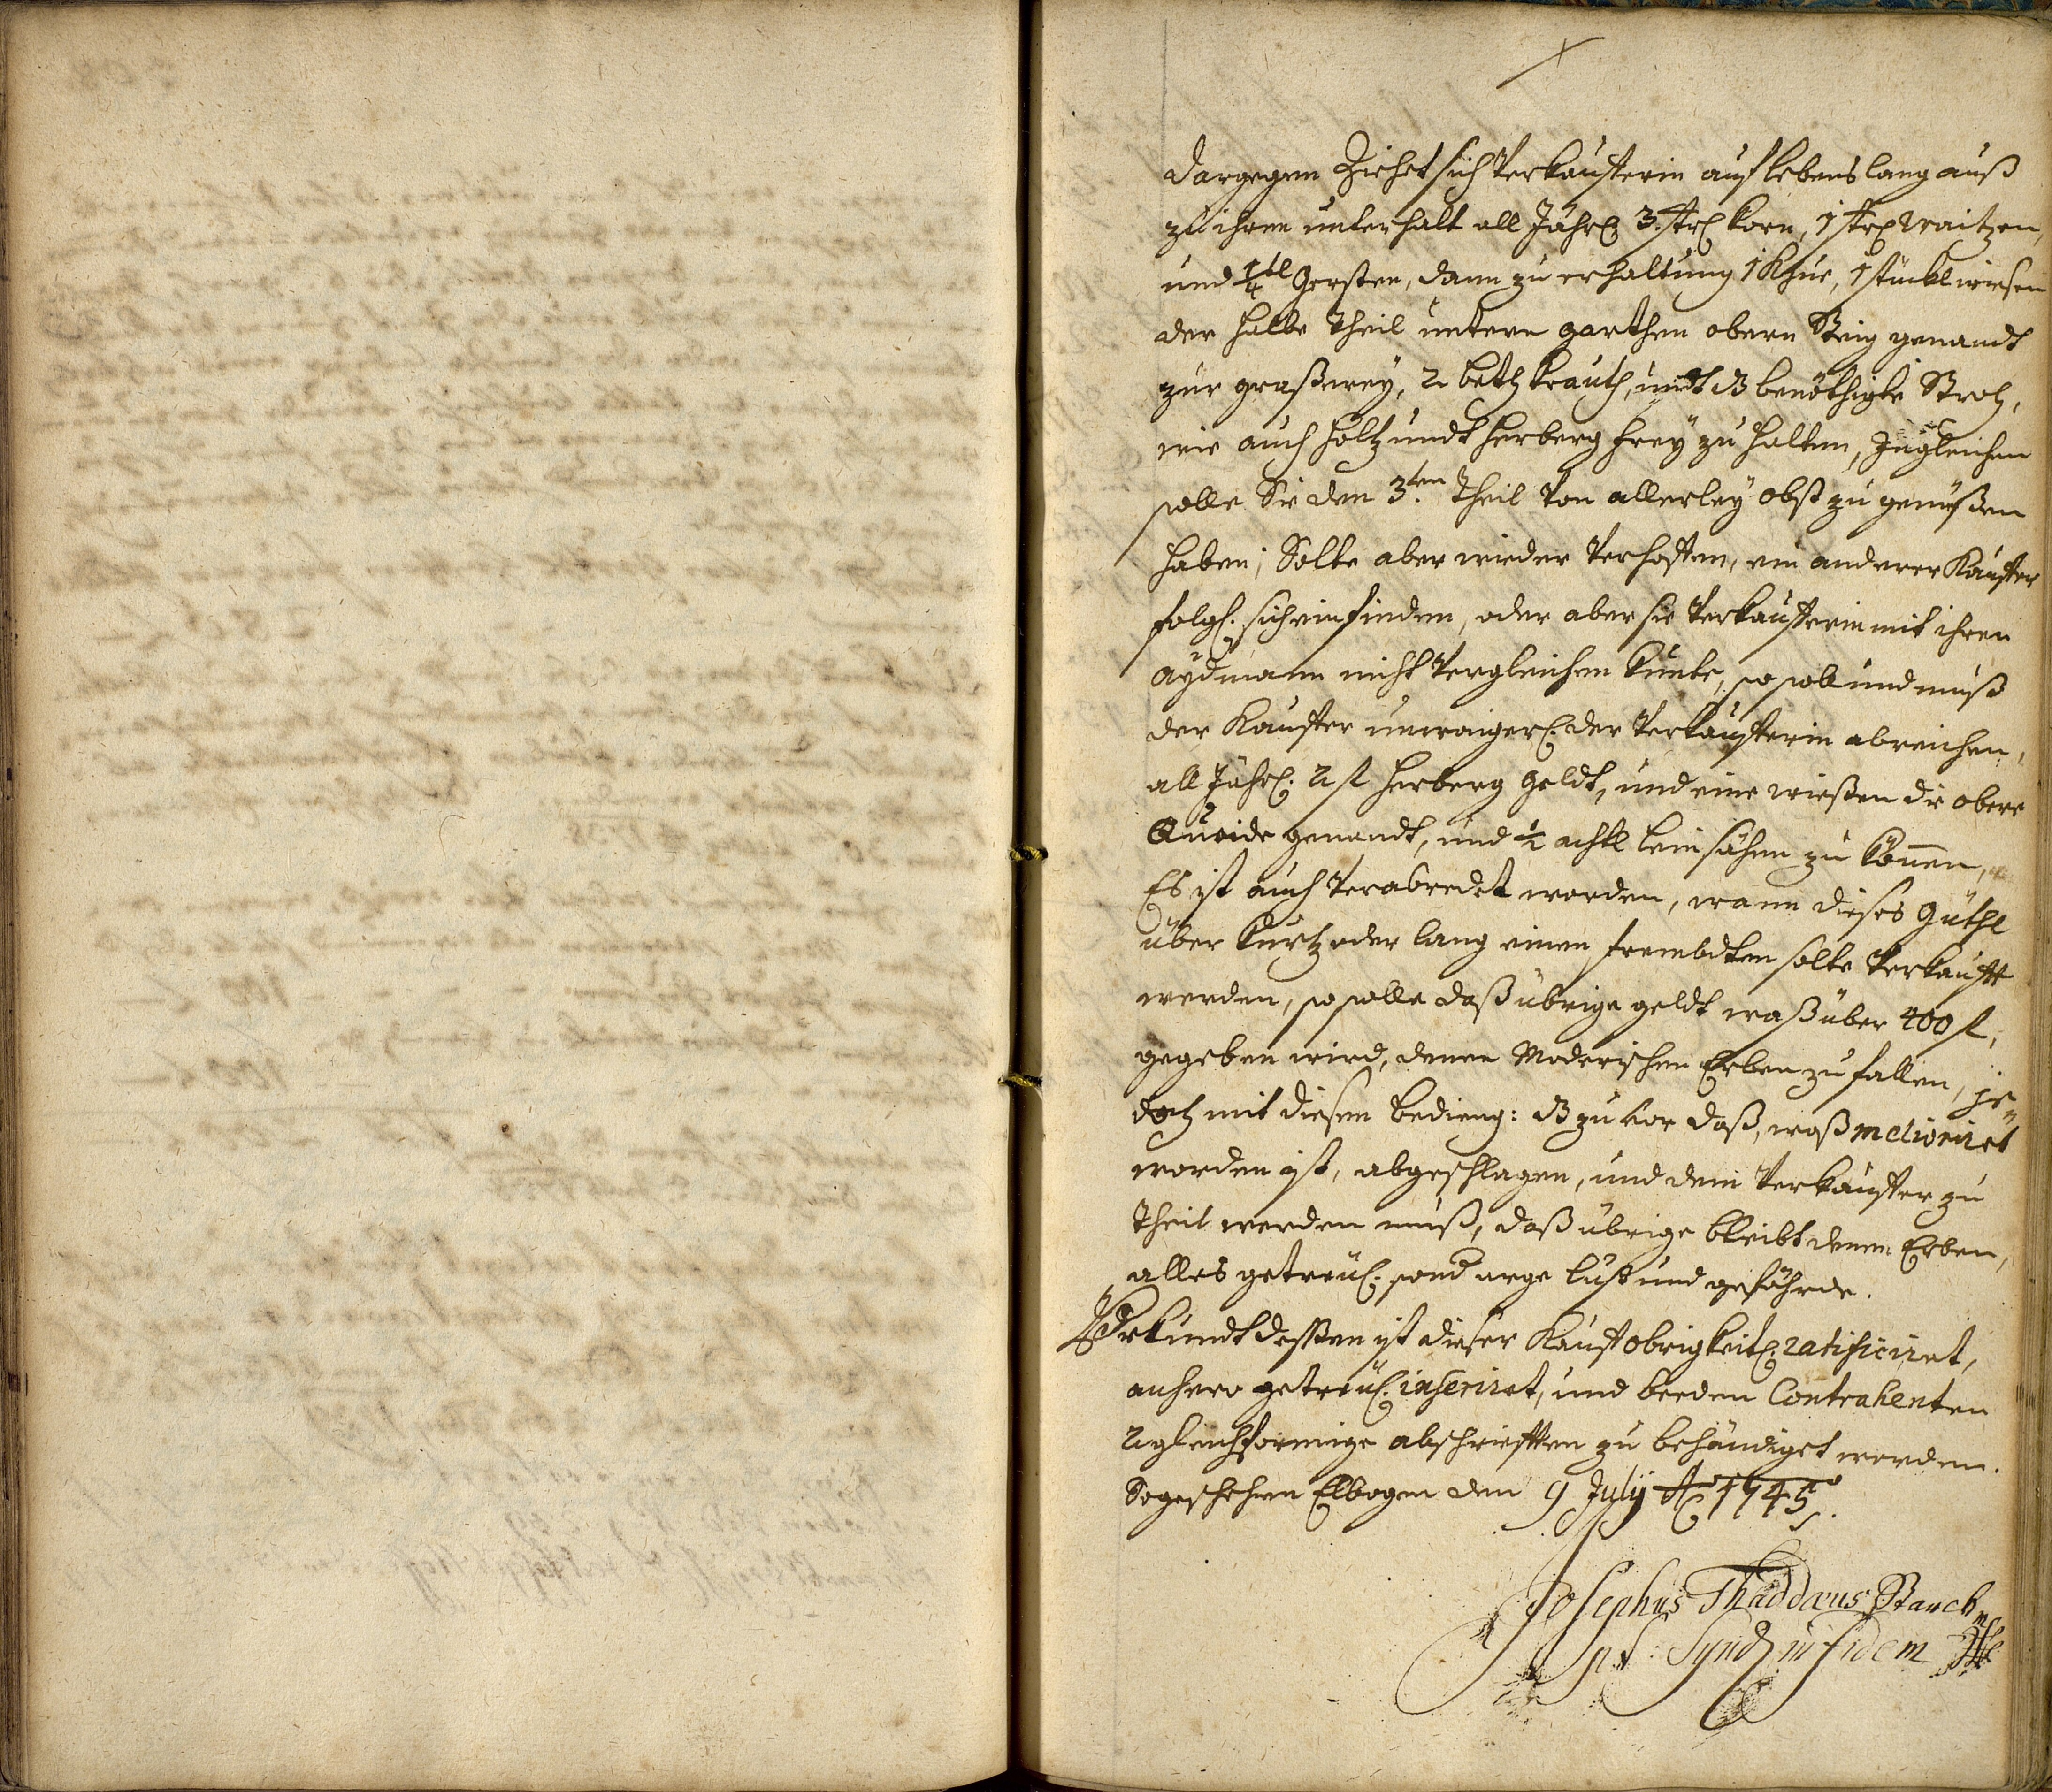 Dargegen Ziehet sich Verkaufferin auf lebens lang auß
zu ihren unterhalt all Jährl: 3. Strl korn, 1 Strl waitzen,
und 1/4tl Gersten, dann zu erhaltung 1 Khue, 1 stückl wiesen
der halbe Theil untern garthen obern Steig genandt
zur graßerey, 2 beth krauth, undt dz benöthigte Stroh,
wie auch holtz undt herberg freÿ zu halten, Ingleichen
solle Sie den 3.ten Theil Von allerleÿ obst zu genüßen
haben; Solte aber wieder Verhoffen, ein anderer Kauffer
folgl: sich einfinden, oder aber sie Verkaufferin mit ihren
aÿdmann nicht Vergleichen kunte, so soll und muß
der Kauffer unwaigerl: der Verkaufferin abreichen,
all Jährl: 2 fl herberg geldt, und eine wießen die obere
genandt, und 1/2 achtl lein sähen zu können,
Es ist auch Verabredet worden, wann dieses Güthl
über kurtz oder lang einen frembdten solte Verkaufft
werden, so solle daß übrige geldt waß über 400 fl,
gegeben wird, denen Moderischen Erben zu fallen, je=
doch mit diesen beding: dz zu vor daß, waß meliorirt
worden ist, abgeschlagen, und dem Verkauffer zu
Theil werden muß, daß übrige bleibt denen Erben,
alles getreul: sond arge lüst und gefährde.
Urkundt dessen ist dieser Kauff obrigkeitl: ratificiret,
anhero getreül: inseriret, und beeden Contrahenten
2 gleichformige abschrifften zu behändiget worden.
So geschehen Elbogen den 9 Julÿ Ao 1745.
Josephus Thaddæus Starck
p.t. Synd: in fidem mpe